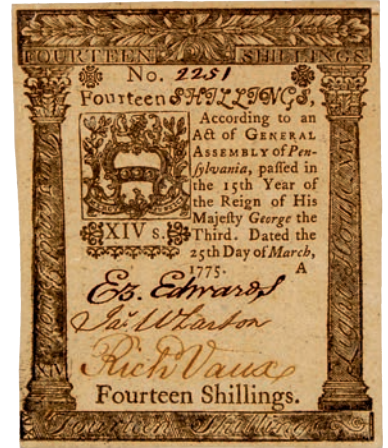 FOURTEEN SHILLINGS
No. 2251
Fourteen SHILLINGS,
According to an
Act of GENERAL
ASSEMBLY of Pen-
ſylvania, paſſed in
the 15th Year of
the Reign of His
Majeſty George the
XIV s.
Third. Dated the
25th Day of March,
1775. A
Ez. Edwards
Jas. Wharton
Richd Vaux
Fourteen Shillings.
Fourteen Shillings